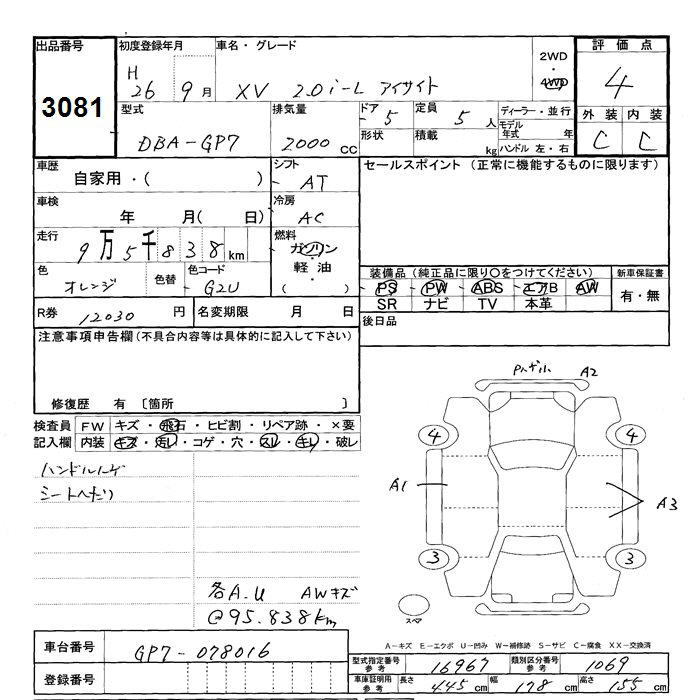 出品番号 初度登録年月 車名・グレード 2WD・4WD 評価点
3081 H 26 9月 XV 2.0i-L アイサイト 4
型式 排気量 ドア 5 定員 5人 ディーラー・並行 外装 内装
DBA-GP7 2000cc 形状 積載 kg モデル年式 年 C C
ハンドル 左・右
車歴 シフト セールスポイント (正常に機能するものに限ります)
自家用・( ) AT
車検 冷房
年 月( 日) AC
走行 燃料
9万5千838km ガソリン
軽油
( )
色 色替 色コード 装備品(純正品に限り○をつけてください) 新車保証書
オレンジ G2U PS PW ABS エアB AW 有・無
SR ナビ TV 本革
R券 12030円 名変期限 月 日 後日品
注意事項申告欄(不具合内容等は具体的に記入して下さい)
修復歴 有 〔箇所 〕
検査員 FW キズ・飛石・ヒビ割・リペア跡・×要
記入欄 内装 キズ・汚レ・コゲ・穴・スレ・キレ・破レ
シートへたり
各A.U AWキズ
@95.838km
A2
4 4
A1 A3
3 3
スペア
A-キズ E-エクボ U-凹み W-補修跡 S-サビ C-腐食 XX-交換済
車台番号 GP7-078016
登録番号
型式指定番号参考 16967 類別区分番号参考 1069
車庫証明用参考 長さ 445cm 幅 178cm 高さ 155cm